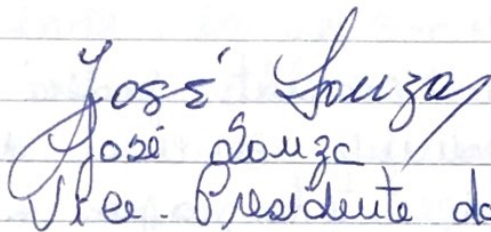 José Souza
José Souza
Vice-Presidente da